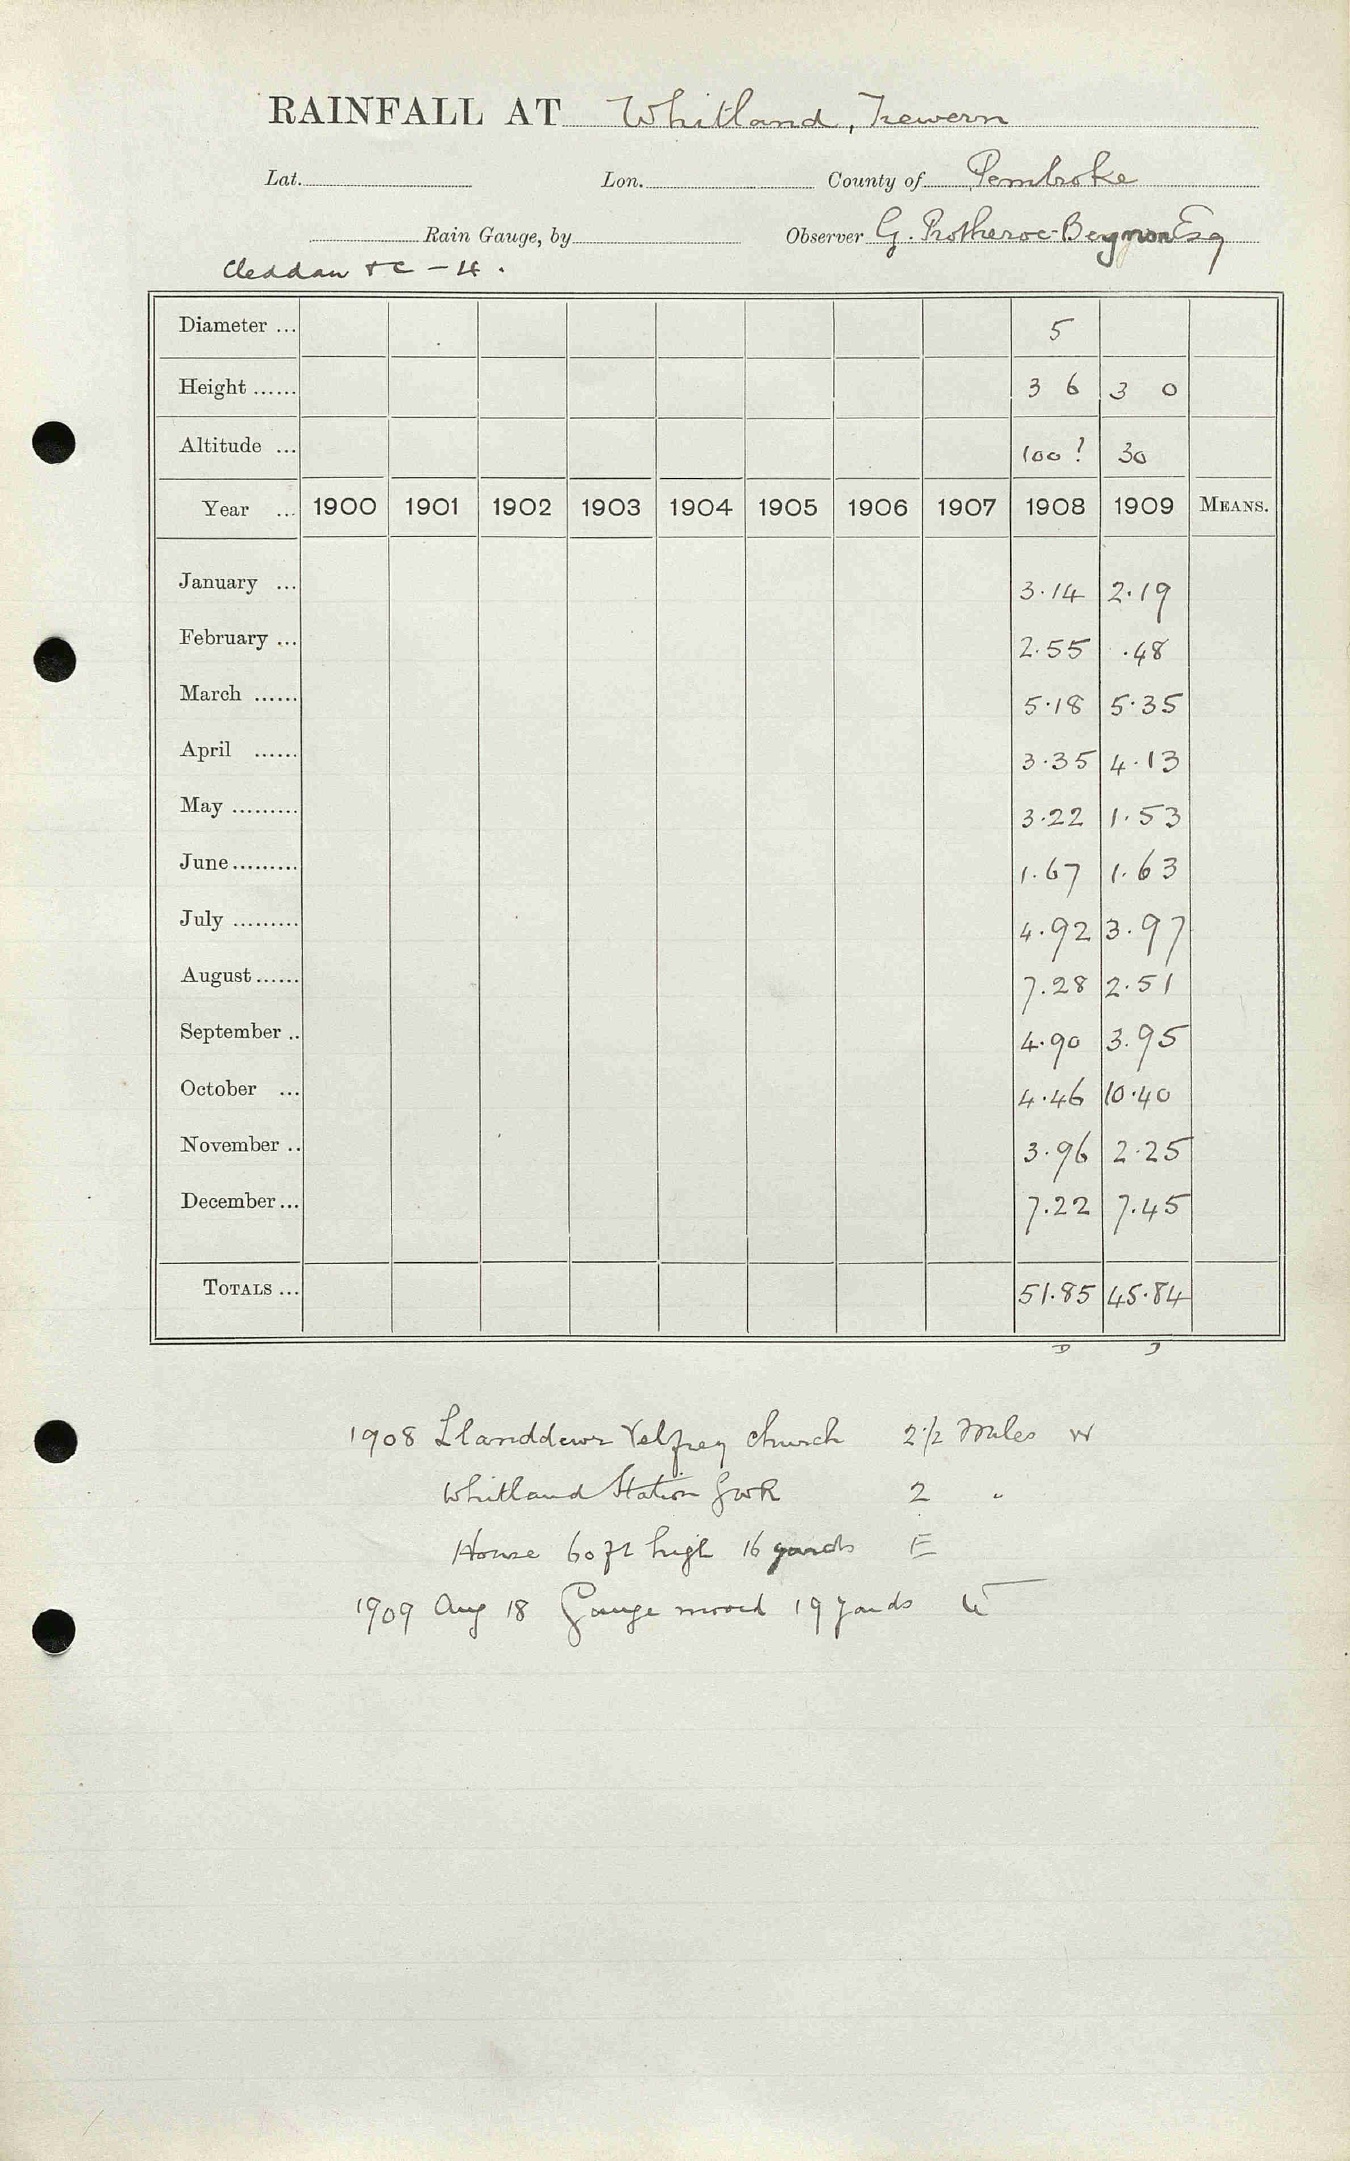 RAINFALL AT Whitland, Trewern
Lat. Lon. County of Pembroke
Rain Gauge, by Observer G. Protheroe-Beynon Esq
Cleddau &c - 4.
Diameter ... 5
Height ...... 3 6 3 0
Altitude ... 100? 30
Year ... 1900 1901 1902 1903 1904 1905 1906 1907 1908 1909 MEANS.
January ... 3.14 2.19
February ... 2.55 .48
March ...... 5.18 5.35
April ...... 3.35 4.13
May ......... 3.22 1.53
June ......... 1.67 1.63
July ......... 4.92 3.97
August ...... 7.28 2.51
September .. 4.90 3.95
October ... 4.46 10.40
November .. 3.96 2.25
December ... 7.22 7.45
TOTALS ... 51.85 45.84
D J
1908 Llanddewi Velfrey church 2½ miles W
Whitland Station GWR 2 "
House 60 ft high 16 yards E
1909 Aug 18 Gauge moved 19 yards W